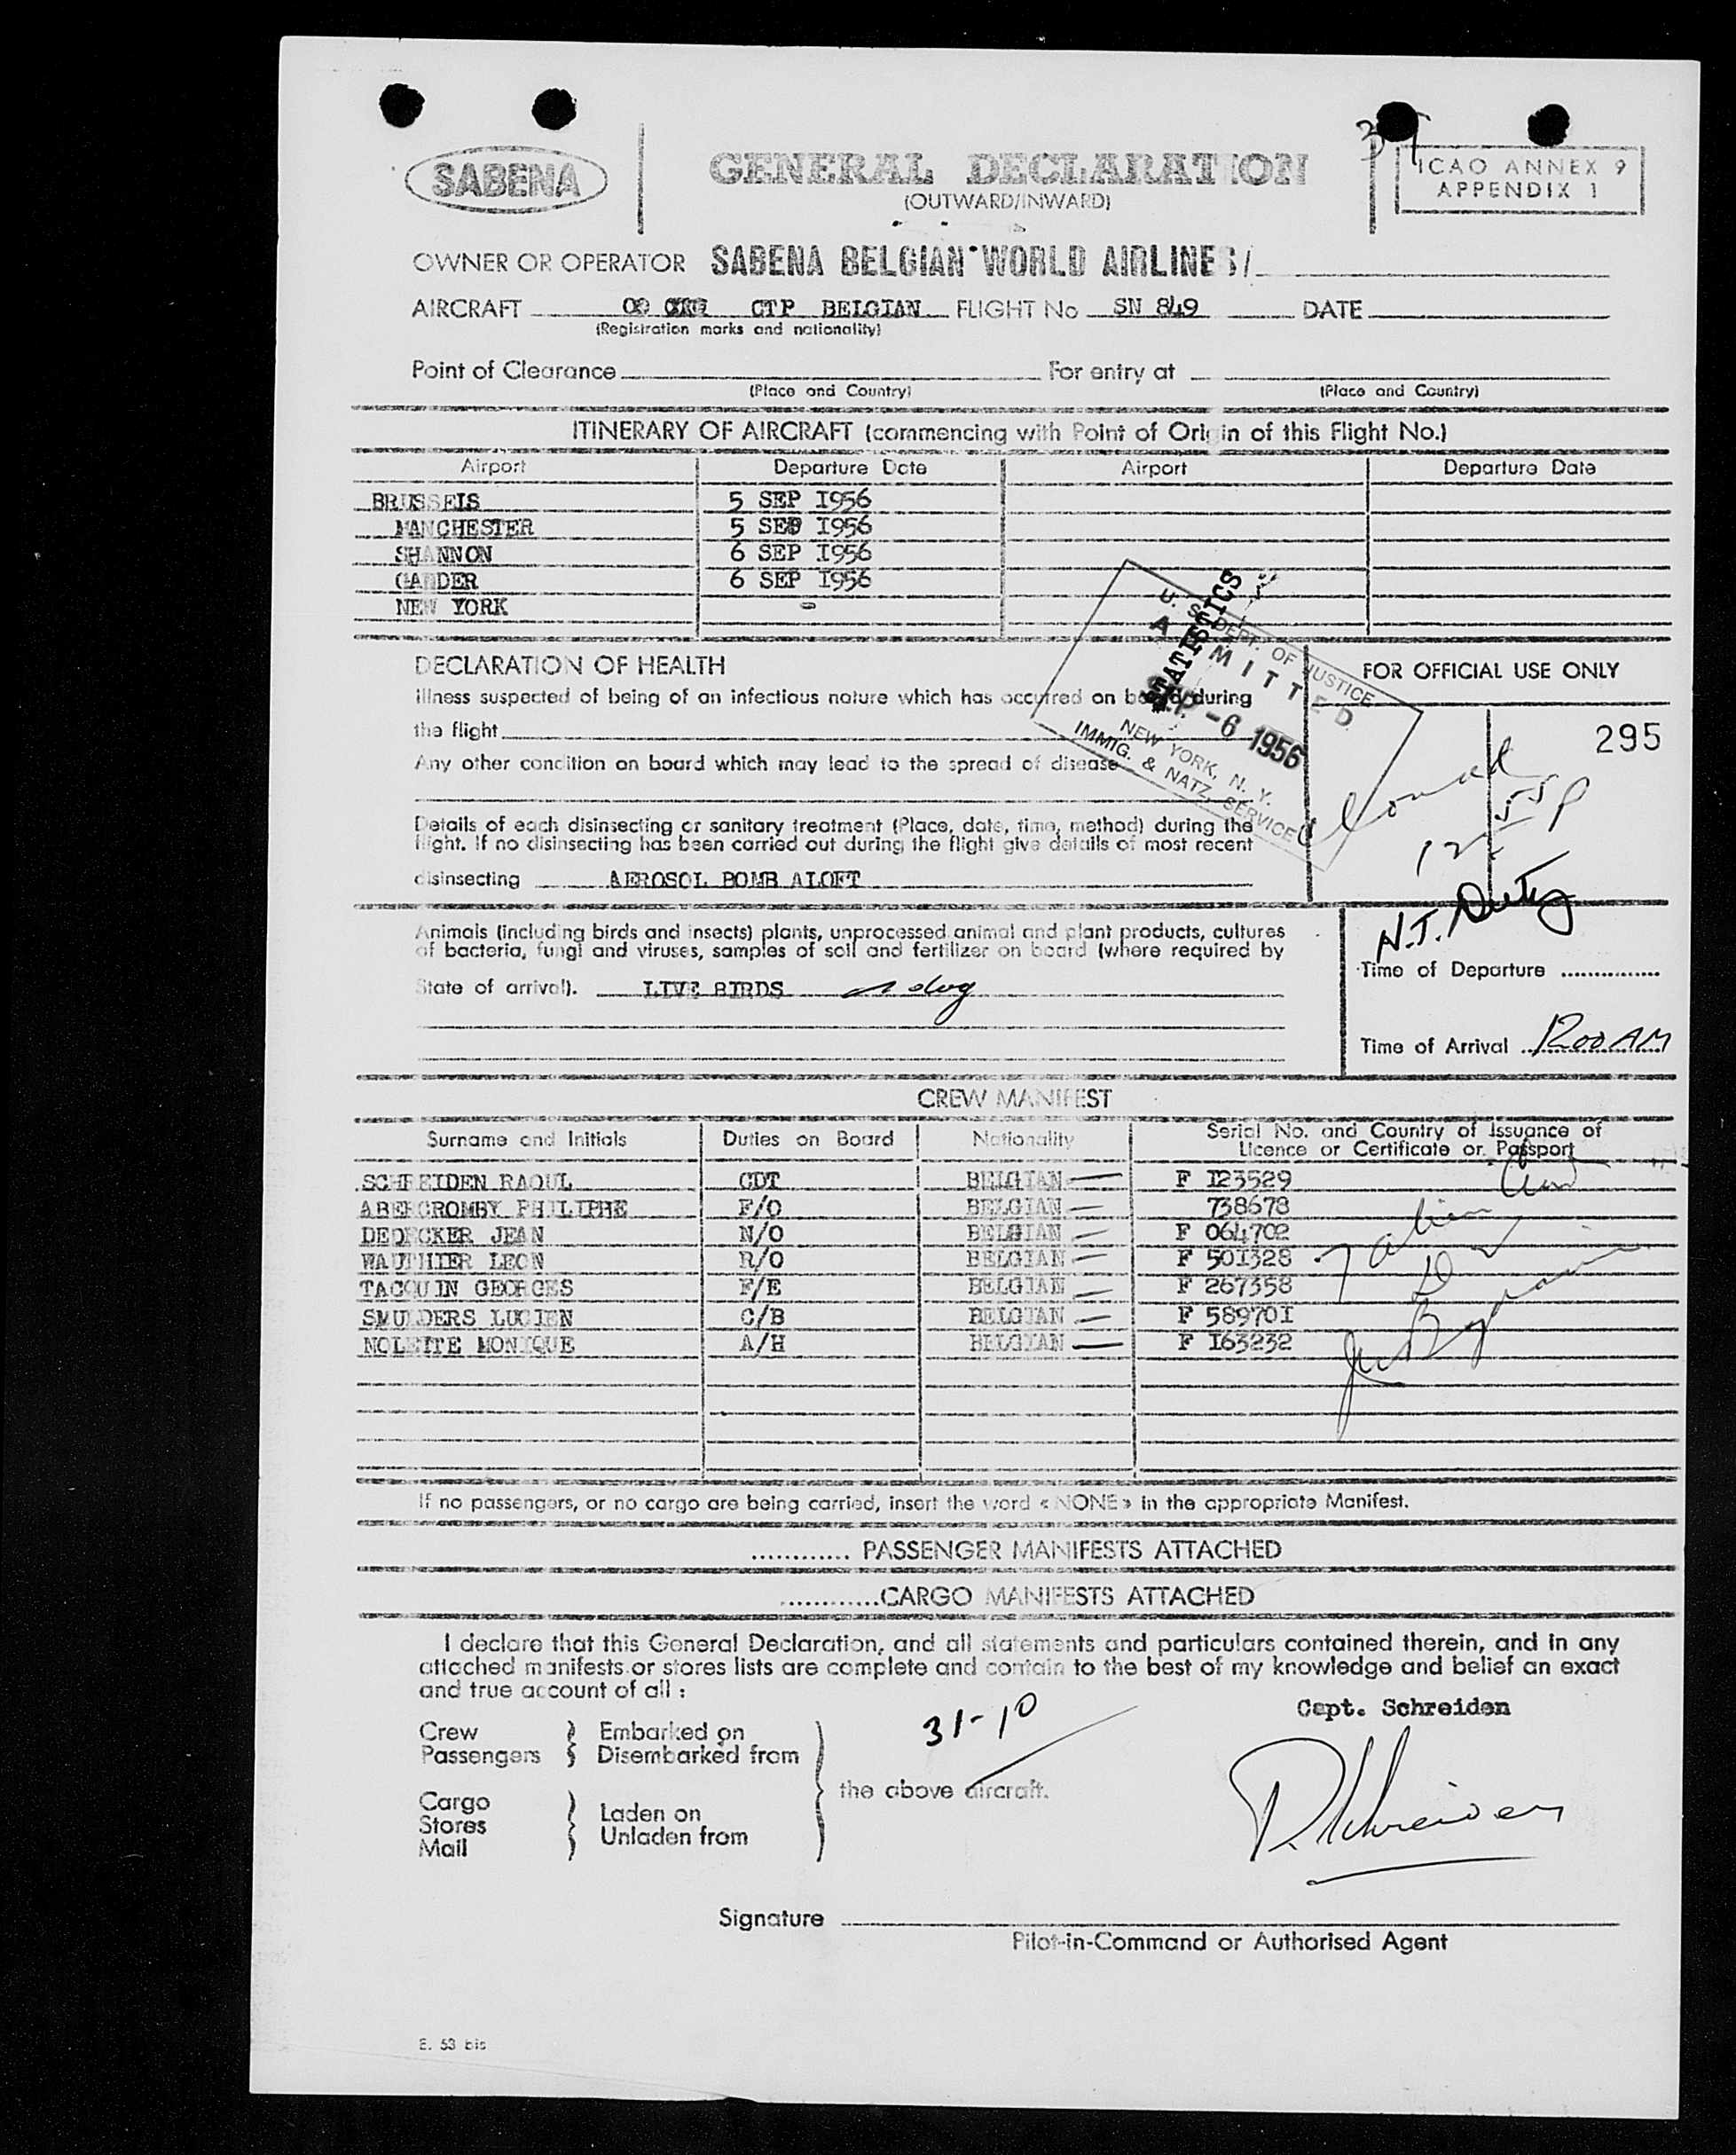 SABENA
GENERAL DECLARATION
(OUTWARD/INWARD)
ICAO ANNEX 9
APPENDIX 1
OWNER OR OPERATOR SABENA BELGIAN WORLD AIRLINES/
AIRCRAFT OO CTP BELGIAN FLIGHT No SN 849 DATE
(Registration marks and nationality)
Point of Clearance For entry at
(Place and Country) (Place and Country)
ITINERARY OF AIRCRAFT (commencing with Point of Origin of this Flight No.)
Airport Departure Date Airport Departure Date
BRUSSELS 5 SEP 1956
MANCHESTER 5 SEP 1956
SHANNON 6 SEP 1956
GANDER 6 SEP 1956
NEW YORK -
STATISTICS
U. S. DEPT. OF JUSTICE
ADMITTED
SEP -6 1956
NEW YORK, N. Y.
IMMIG. & NATZ. SERVICE
DECLARATION OF HEALTH
Illness suspected of being of an infectious nature which has occurred on board during
the flight
Any other condition on board which may lead to the spread of disease
Details of each disinsecting or sanitary treatment (Place, date, time, method) during the
flight. If no disinsecting has been carried out during the flight give details of most recent
disinsecting AEROSOL BOMB ALOFT
FOR OFFICIAL USE ONLY
295
Animals (including birds and insects) plants, unprocessed animal and plant products, cultures
of bacteria, fungi and viruses, samples of soil and fertilizer on board (where required by
State of arrival). LIVE BIRDS dog
Time of Departure
Time of Arrival 1200 AM
CREW MANIFEST
Surname and Initials Duties on Board Nationality Serial No. and Country of Issuance of
Licence or Certificate or Passport
SCHREIDEN RAOUL CDT BELGIAN F 123529
ABERCROMBY PHILIPPE F/O BELGIAN 738678
DEDECKER JEAN N/O BELGIAN F 064702
WAUTHIER LEON R/O BELGIAN F 501328
TACQUIN GEORGES F/E BELGIAN F 267358
SMULDERS LUCIEN C/B BELGIAN F 589701
MONIQUE A/H BELGIAN F 163232
If no passengers, or no cargo are being carried, insert the word « NONE » in the appropriate Manifest.
............ PASSENGER MANIFESTS ATTACHED
............CARGO MANIFESTS ATTACHED
I declare that this General Declaration, and all statements and particulars contained therein, and in any
attached manifests or stores lists are complete and contain to the best of my knowledge and belief an exact
and true account of all :
Capt. Schreiden
31-10
Crew Embarked on
Passengers Disembarked from
the above aircraft.
Cargo
Stores Laden on
Mail Unladen from
Signature
Pilot-in-Command or Authorised Agent
E. 53 bis